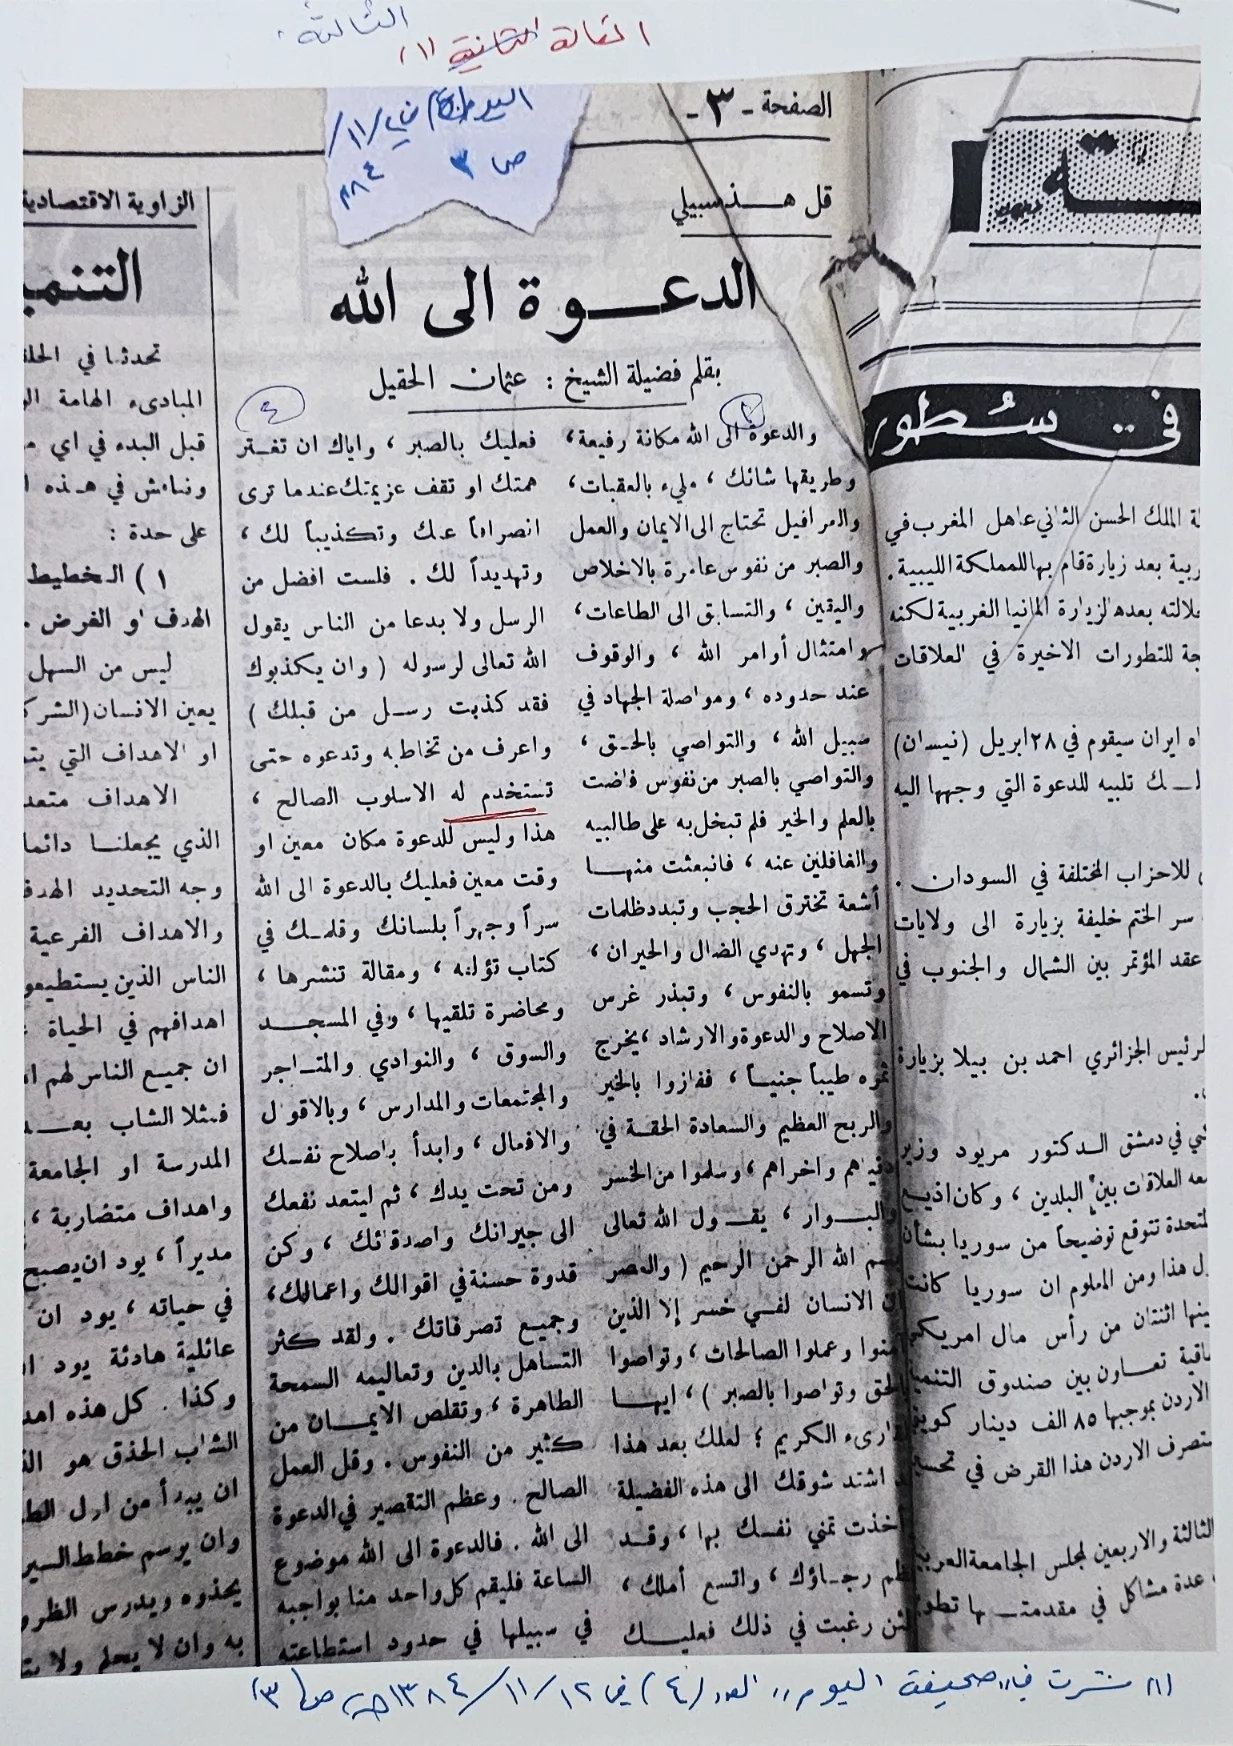 الثالثة
المقالة الثانية (١)
الصفحة - ٣ -
ص ٣
قل هــذه سبيلي
الدعــوة الى الله
بقلم فضيلة الشيخ : عثمان الحقيل
والدعوة الى الله مكانة رفيعة،
وطريقها شائك ، مليء بالعقبات،
والعراقيل تحتاج الى الايمان والعمل
والصبر من نفوس عامرة بالاخلاص
واليقين ، والتسابق الى الطاعات،
وامتثال أوامر الله ، والوقوف
عند حدوده ، ومواصلة الجهاد في
سبيل الله ، والتواصي بالحق ،
والتواصي بالصبر من نفوس فاضت
بالعلم والخير فلم تبخل به على طالبيه
والغافلين عنه ، فانبعثت منهـا
أشعة تخترق الحجب وتبدد ظلمات
الجهل ، وتهدي الضال والحيران ،
وتسمو بالنفوس ، وتبذر غرس
الاصلاح والدعوة والارشاد ، يخرج
ثمره طيباً جنيـاً ، ففازوا بالخير
والربح العظيم والسعادة الحقـة في
دنياهم واخراهم ، وسلموا من الخسر
والبــوار ، يقــول الله تعالى
بسم الله الرحمن الرحيم ( والعصر
ان الانسان لفــي خسر إلا الذين
آمنوا وعملوا الصالحات ، وتواصوا
بالحق وتواصوا بالصبر ) ، ايهـا
القارىء الكريم ؛ لعلك بعد هذا
قد اشتد شوقك الى هذه الفضيلة
وأخذت تمني نفسـك بها ، وقـد
عظم رجـاؤك ، واتسع أملك ،
لئن رغبت في ذلك فعليــك
٤
فعليك بالصبر ، واياك ان تفـتر
همتك او تقف عزيمتك عندما ترى
انصرافاً عنك وتكذيباً لك ،
وتهديداً لك . فلست افضل من
الرسل ولا بدعا من الناس يقول
الله تعالى لرسوله ( وان يكذبوك
فقد كذبت رســل من قبلك )
واعرف من تخاطبه وتدعوه حتى
تستخدم له الاسلوب الصالح ،
هذا وليس للدعوة مكان معين او
وقت معين فعليك بالدعوة الى الله
سراً وجهراً بلسانك وقلمـك في
كتاب تؤلفه ، ومقالة تنشرها ،
ومحاضرة تلقيها ، وفي المسجــد
والسوق ، والنوادي والمتـاجر
والمجتمعات والمدارس ، وبالاقوال
والافعال ، وابدأ باصلاح نفسـك
ومن تحت يدك ، ثم ليتعد نفعك
الى جيرانك واصدقائك ، وكن
قدوة حسنة في اقوالك واعمالك،
وجميع تصرفاتك . ولقد كثر
التساهل بالدين وتعاليمه السمحة
الطاهرة ، وتقلص الايمــان من
كثير من النفوس . وقل العمل
الصالح . وعظم التقصير في الدعوة
الى الله . فالدعوة الى الله موضوع
الساعة فليقم كل واحد منا بواجبه
في سبيلها في حدود استطاعته
في .. سُطور
ة الملك الحسن الثاني عاهل المغرب في
ربية بعد زيارة قام بها للمملكة الليبية .
جلالته بعده لزيارة المانيا الغربية لكنه
جة للتطورات الاخيرة في العلاقات
اه ايران سيقوم في ٢٨ ابريل (نيسان)
لــك تلبيه للدعوة التي وجهها اليه
للاحزاب المختلفة في السودان .
سر الختم خليفة بزيارة الى ولايات
عقد المؤتمر بين الشمال والجنوب في
لرئيس الجزائري احمد بن بيلا بزيارة
في دمشق الـدكتور مريود وزير
العلاقات بين البلدين ، وكان اذيـع
لمتحدة تتوقع توضيحاً من سوريا بشأن
ل هذا ومن المعلوم ان سوريا كانت
بينها اثنتان من رأس مال امريكي
اقية تعـاون بين صندوق التنمية
الاردن بموجبها ٨٥ الف دينار كويتي
يتصرف الاردن هذا القرض في تحسين
الثالثة والاربعين لمجلس الجامعة العربية
عدة مشاكل في مقدمتــها تطور
الزاوية الاقتصادية
التنميـ
تحدثنـا في الحلقـ
المبادىء الهامة الـ
قبل البدء في اي مـ
ونناقش في هـذه ا
على حدة :
١ ) التخطيط
الهدف او الغرض .
ليس من السهل
يعين الانسان (الشركـ
او الاهداف التي يتـ
الاهداف متعد
الذي يجعلنـا دائما
وجه التحديد الهدف
والاهداف الفرعية
الناس الذين يستطيعو
اهدافهم في الحياة
ان جميـع الناس لهم ا
فمثلا الشاب بعــد
المدرسة او الجامعة
واهداف متضاربة ،
مديراً ، يود ان يصبح
في حياته ، يود ان
عائلية هادئة يود ا
وكذا . كل هذه اهد
الشاب الحذق هو الذ
ان يبدأ من اول الط
وان يرسم خطط السير
يحذوه ويدرس الظرو
به وان لا يحلم ولا يتـ
(١) نشرت في «صحيفة اليوم» العدد (٤) في ١٢/١١/١٣٨٤هـ ص (٣)